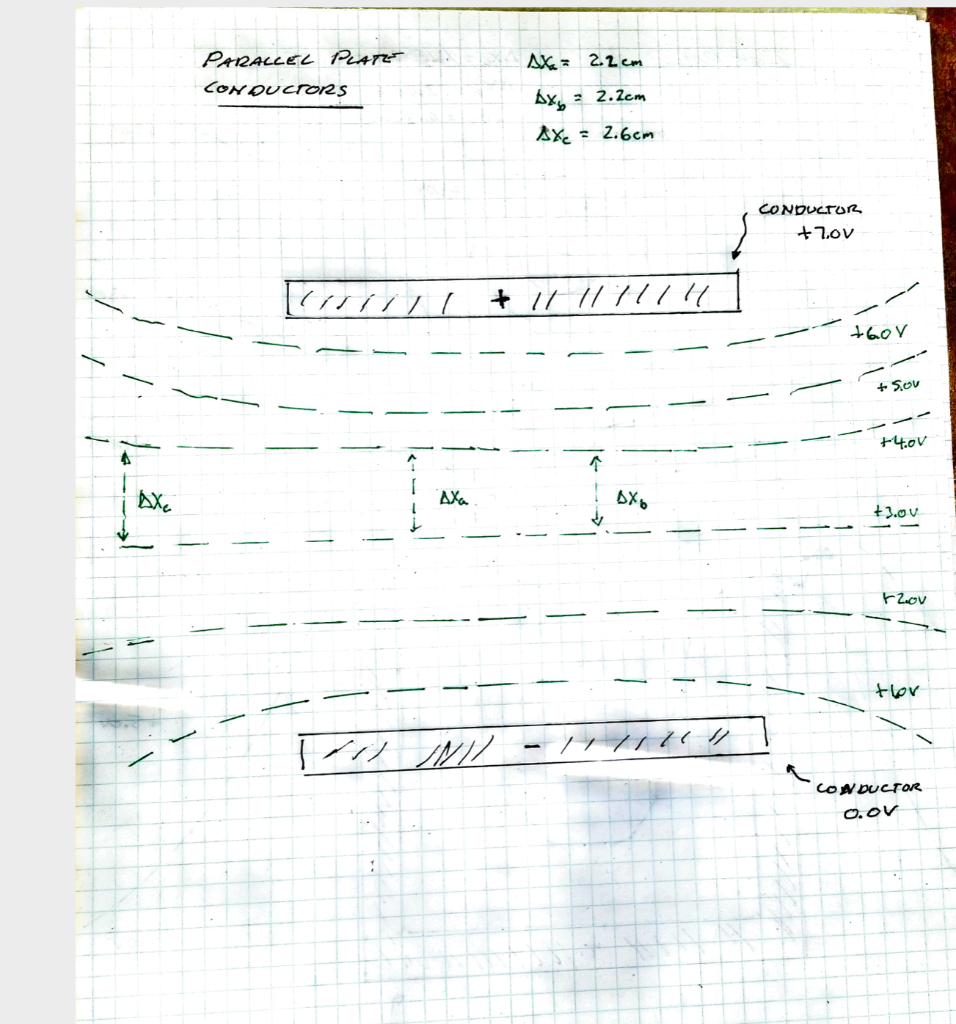 PARALLEL PLATE
CONDUCTORS
ΔXa = 2.2 cm
ΔXb = 2.2cm
ΔXc = 2.6cm
CONDUCTOR
+7.0V
+
+6.0V
+5.0V
+4.0V
ΔXc
ΔXa
ΔXb
+3.0V
+2.0V
+1.0V
-
CONDUCTOR
0.0V